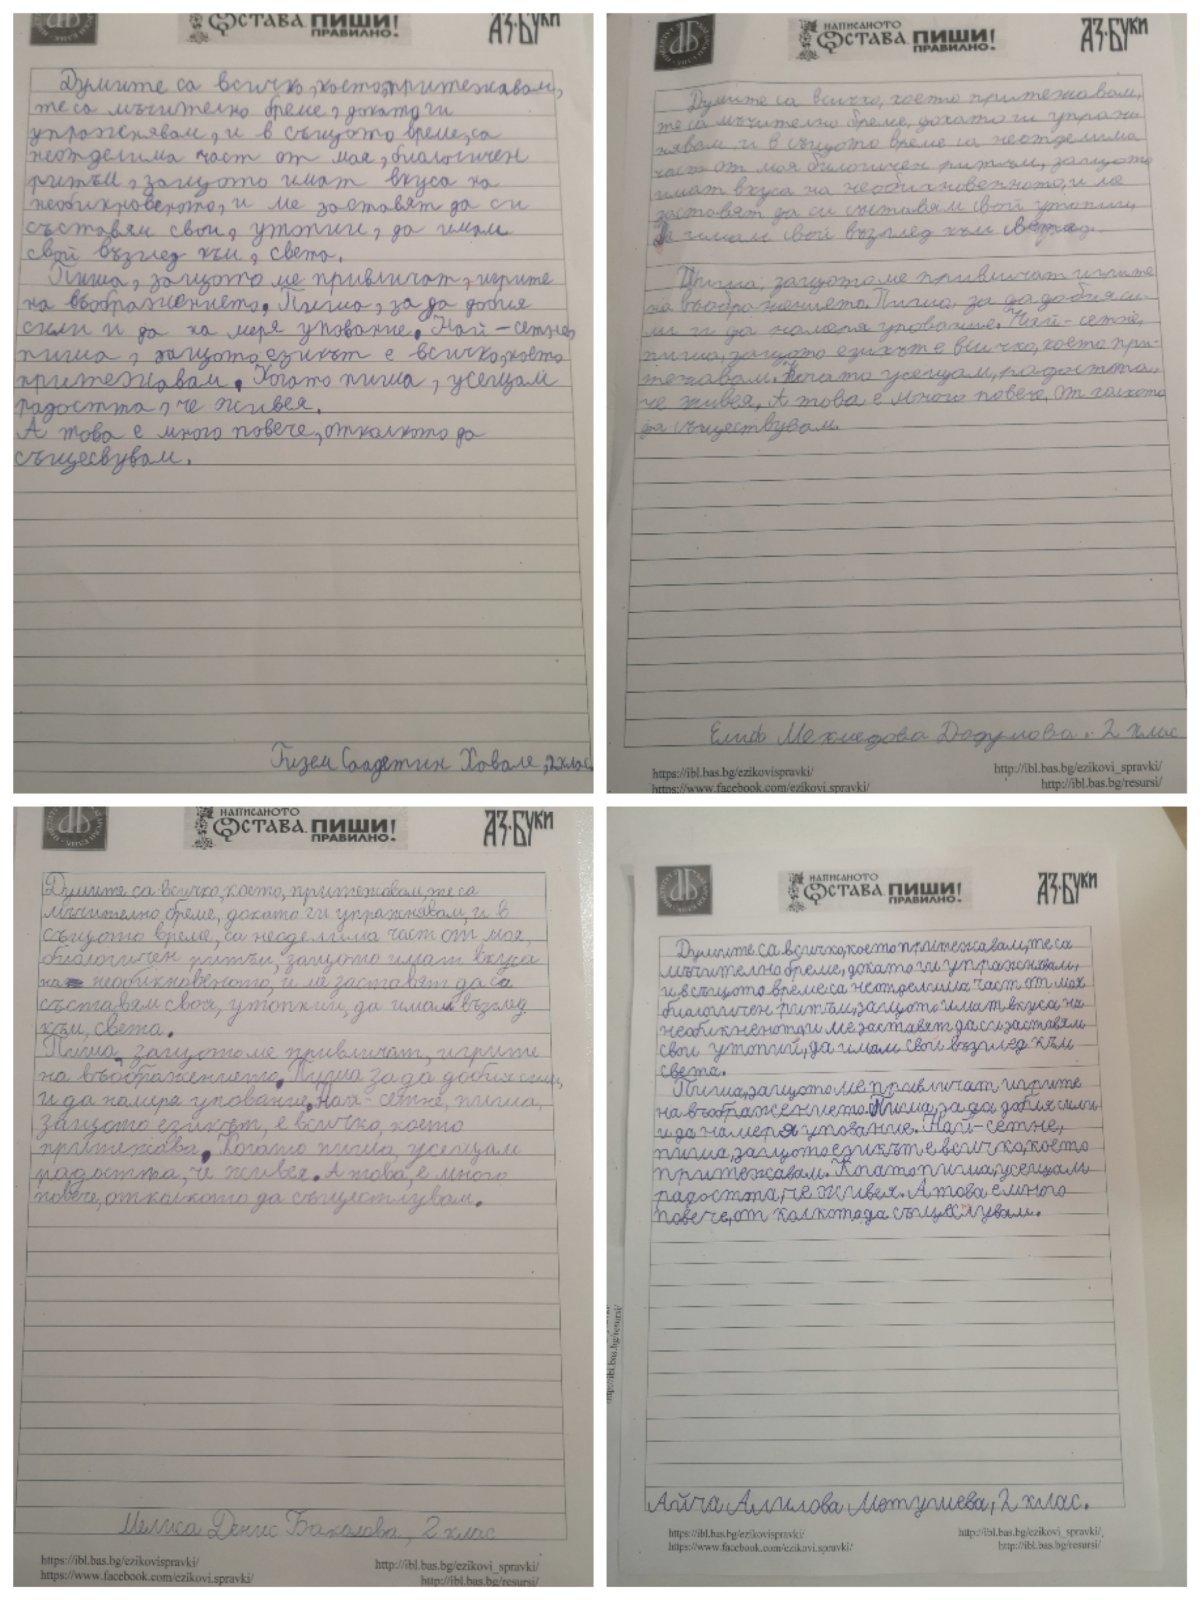 НАПИСАНОТО
ОСТАВА. ПИШИ!
ПРАВИЛНО.
АЗ·БУКИ
Думите са всичко, което, притежавам,
те са мъчително бреме, докато ги
упражнявам, и в същото време, са
неотделима част от моя, биологичен
ритъм, защото имат вкуса на
необикновеното, и ме заставят да си
съставям свои, утопии, да имам
свой възглед към, света.
Пиша, защото ме привличат, игрите
на въображението. Пиша, за да добия
сили и да на меря упование. Най-сетне,
пиша, защото езикът е всичко, което
притежавам. Когато пиша, усещам
радостта, че живея.
А това е много повече, отколкото да
същесвувам.
Гизем Саадетин Ховале, 2 клас
НАПИСАНОТО
ОСТАВА. ПИШИ!
ПРАВИЛНО.
АЗ·БУКИ
Думите са всичко, което притежавам,
те са мъчително бреме, докато ги упраж-
нявам и в същото време са неотделима
част от моя биологичен ритъм, защото
имат вкуса на необикновенното, и ме
заставят да си съставям свой утопии,
да имам свой възглед към света.
Пиша, защото ме привличат игрите
на въображението. Пиша, за да добия си-
ли и да намеря упование. Най-сетне,
пиша, защото езикът е всичко, което при-
тежавам. Когато усещам, радостта,
че живея. А това е много повече, от колкото
да съществувам.
Елиф Мехмедова Додумова. 2 клас
https://ibl.bas.bg/ezikovispravki/
http://ibl.bas.bg/ezikovi_spravki/
https://www.facebook.com/ezikovi.spravki/
http://ibl.bas.bg/resursi/
НАПИСАНОТО
ОСТАВА. ПИШИ!
ПРАВИЛНО.
АЗ·БУКИ
Думите са всичко, което, притежавам, те са
мъчително бреме, докато ги упражнявам, и в
същото време, са неоделима част от моя,
биологичен ритъм, защото имат вкуса
на необикновеното, и ме заставят да са
съставям своя, утопкии, да имам възглед
към, света.
Пиша, защото ме привличат, игрите
на въображението. Пиша за да добия сили,
и да намеря упование, ная-сетне, пиша,
защото езикът, е всичко, което
притежава. Когато пиша, усещам
радостта, че живея. А това, е много
повече, отколкото да същестлувам.
Мелиса Денис Бакалова, 2 клас
https://ibl.bas.bg/ezikovispravki/
http://ibl.bas.bg/ezikovi_spravki/
https://www.facebook.com/ezikovi.spravki/
http://ibl.bas.bg/resursi/
НАПИСАНОТО
ОСТАВА. ПИШИ!
ПРАВИЛНО.
АЗ·БУКИ
Думите са всичко, което притежавам, те са
мъчително бреме, докато ги упражнявам,
и в същото време са неотделима част от моя
биологичен ритъм, защото имат вкуса на
необикненото, и ме заставят да си заставям
свои утопий, да имам свой възглед към
света.
Пиша, защото ме привличат игрите
на въображението. Пиша, за да добия сили
и да намеря упование. Най-сетне,
пиша, защото езикът е всичко, което
притежавам. Когато пиша, усещам
радостта, че живея. А това е много
повече, от колкото да същеслувам.
Айча Алилова Мотушева, 2 клас.
https://ibl.bas.bg/ezikovispravki/
http://ibl.bas.bg/ezikovi_spravki/
https://www.facebook.com/ezikovi.spravki/
http://ibl.bas.bg/resursi/
http://ibl.bas.bg/resursi/